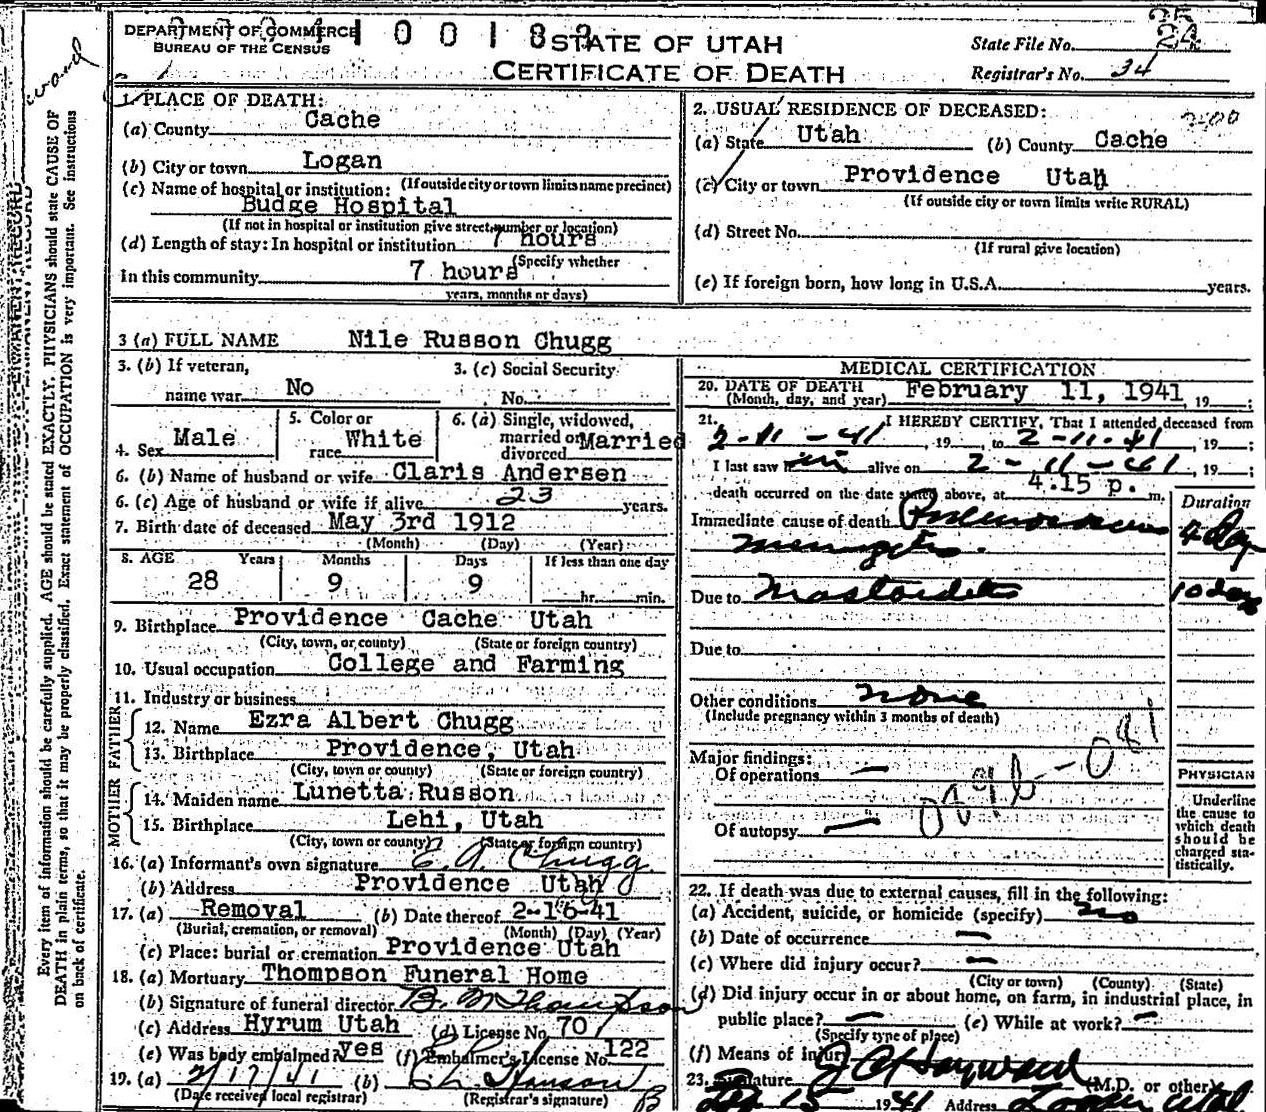 DEPARTMENT OF COMMERCE
BUREAU OF THE CENSUS
STATE OF UTAH
CERTIFICATE OF DEATH
State File No. 24
Registrar's No. 34
Every item of information should be carefully supplied. AGE should be stated EXACTLY. PHYSICIANS should state CAUSE OF
DEATH in plain terms, so that it may be properly classified. Exact statement of OCCUPATION is very important. See instructions
on back of certificate.
1. PLACE OF DEATH:
(a) County Cache
(b) City or town Logan
(If outside city or town limits name precinct)
(c) Name of hospital or institution:
Budge Hospital
(If not in hospital or institution give street number or location)
(d) Length of stay: In hospital or institution 7 hours
(Specify whether
In this community 7 hours
years, months or days)
2. USUAL RESIDENCE OF DECEASED:
(a) State Utah (b) County Cache
(c) City or town Providence Utah
(If outside city or town limits write RURAL)
(d) Street No.
(If rural give location)
(e) If foreign born, how long in U.S.A. years.
3 (a) FULL NAME Nile Russon Chugg
3. (b) If veteran,
name war No
3. (c) Social Security
No.
4. Sex Male
5. Color or
race White
6. (a) Single, widowed,
married or
divorced Married
6. (b) Name of husband or wife Claris Andersen
6. (c) Age of husband or wife if alive 23 years.
7. Birth date of deceased May 3rd 1912
(Month) (Day) (Year)
8. AGE Years Months Days If less than one day
28 9 9 hr. min.
9. Birthplace Providence Cache Utah
(City, town, or county) (State or foreign country)
10. Usual occupation College and Farming
11. Industry or business
FATHER
12. Name Ezra Albert Chugg
13. Birthplace Providence, Utah
(City, town or county) (State or foreign country)
MOTHER
14. Maiden name Lunetta Russon
15. Birthplace Lehi, Utah
(City, town or county) (State or foreign country)
16. (a) Informant's own signature E. A. Chugg.
(b) Address Providence Utah
17. (a) Removal (b) Date thereof 2-16-41
(Burial, cremation, or removal) (Month) (Day) (Year)
(c) Place: burial or cremation Providence Utah
18. (a) Mortuary Thompson Funeral Home
(b) Signature of funeral director B. M Thompson
(c) Address Hyrum Utah (d) License No. 70
(e) Was body embalmed? yes (f) Embalmer's License No. 122
19. (a) 2/17/41 (b)
(Date received local registrar) (Registrar's signature)
MEDICAL CERTIFICATION
20. DATE OF DEATH February 11, 1941, 19 ;
(Month, day, and year)
21. I HEREBY CERTIFY, That I attended deceased from
2-11-41, 19 to 2-11-41, 19 ;
I last saw him alive on 2-11-41, 19 ;
death occurred on the date stated above, at 4.15 p. m.
Duration
Immediate cause of death Pneumococcus 4 day
meningitis.
Due to Mastoiditis 10 days
Due to
Other conditions none
(Include pregnancy within 3 months of death)
Major findings:
Of operations —
Of autopsy —
PHYSICIAN
Underline
the cause to
which death
should be
charged sta-
tistically.
22. If death was due to external causes, fill in the following:
(a) Accident, suicide, or homicide (specify) no
(b) Date of occurrence —
(c) Where did injury occur? —
(City or town) (County) (State)
(d) Did injury occur in or about home, on farm, in industrial place, in
public place? — (e) While at work? —
(Specify type of place)
(f) Means of injury
23. Signature J C Hayward (M.D. or other)
15 1941 Address Logan Utah